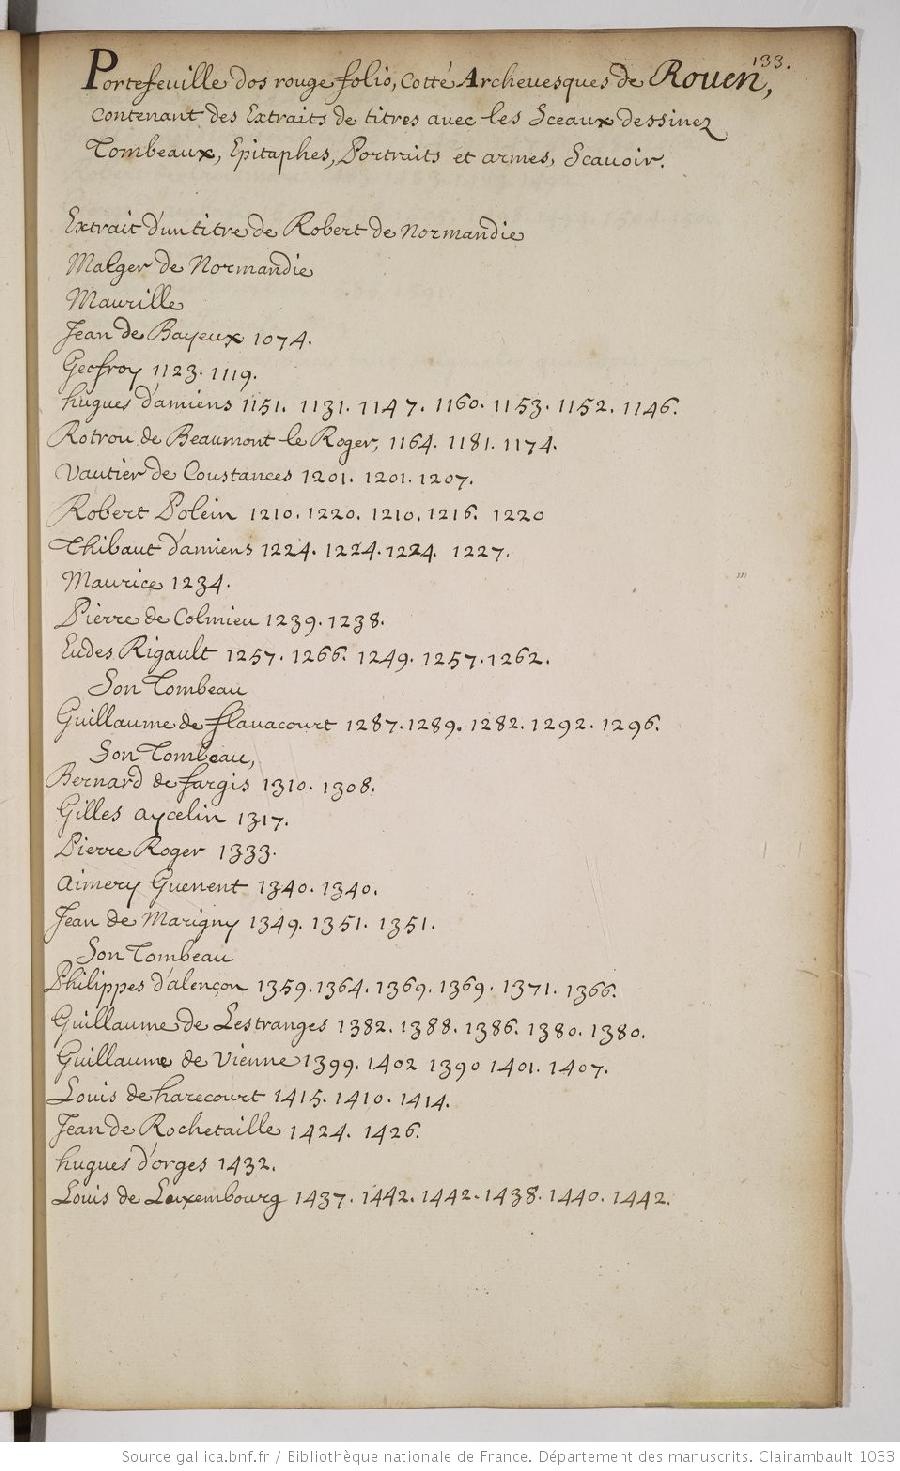 133.
Portefeuille dos rouge folio, Cotté Archeuesques de Rouen,
Contenant des Extraits de titres avec les Sceaux dessinez
Tombeaux, Epitaphes, Portraits et armes, Scauoir.
Extrait d'un titre de Robert de Normandie
Malger de Normandie
Maurille
Jean de Bayeux 1074.
Geofroy 1123. 1119.
hugues d'amiens 1151. 1131. 1147. 1160. 1153. 1152. 1146.
Rotrou de Beaumont le Roger, 1164. 1181. 1174.
Vautier de Coustances 1201. 1201. 1207.
Robert Polein 1210. 1220. 1210. 1216. 1220
Thibaut d'amiens 1224. 1224. 1224. 1227.
Maurice 1234.
Pierre de Colmieu 1239. 1238.
Eudes Rigault 1257. 1266. 1249. 1257. 1262.
Son Tombeau
Guillaume de flauacourt 1287. 1289. 1282. 1292. 1296.
Son Tombeau,
Bernard de fargis 1310. 1308.
Gilles aycelin 1317.
Pierre Roger 1333.
Aimery Guenent 1340. 1340.
Jean de Marigny 1349. 1351. 1351.
Son Tombeau
Philippes d'alençon 1359. 1364. 1369. 1369. 1371. 1366.
Guillaume de Lestranges 1382. 1388. 1386. 1380. 1380.
Guillaume de Vienne 1399. 1402 1390 1401. 1407.
Louis de harecourt 1415. 1410. 1414.
Jean de Rochetaille 1424. 1426.
hugues d'orges 1432.
Louis de Luxembourg 1437. 1442. 1442. 1438. 1440. 1442.
Source gallica.bnf.fr / Bibliothèque nationale de France. Département des manuscrits. Clairambault 1053